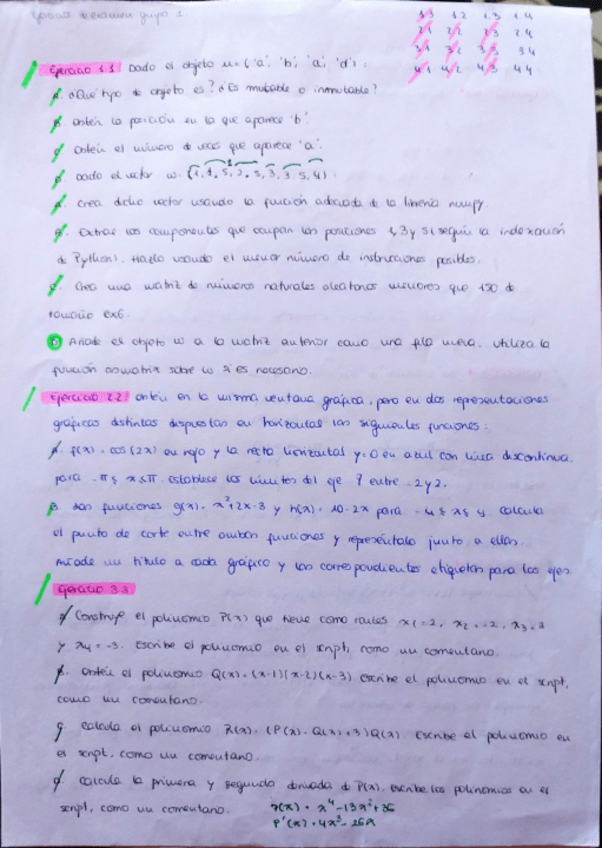 examen grupo 1.
1.1 1.2 1.3 1.4
2.1 2.2 2.3 2.4
3.1 3.2 3.3 3.4
4.1 4.2 4.3 4.4
Ejercicio 1.1 Dado el objeto u = ('a', 'b', 'a', 'd'):
A. ¿Qué tipo de objeto es? ¿Es mutable o inmutable?
B. Obtén la posición en la que aparece 'b'.
C. Obtén el número de veces que aparece 'a'.
D. Dado el vector w: (1, 1, 5, 2, 5, 3, 3, 5, 4).
A. Crea dicho vector usando la función adecuada de la librería numpy.
B. Extrae las componentes que ocupan las posiciones 1, 3 y 5 (según la indexación
de Python). Hazlo usando el menor número de instrucciones posibles.
C. Crea una matriz de números naturales aleatorios menores que 150 de
tamaño 6x6.
D. Añade el objeto w a la matriz anterior como una fila nueva. Utiliza la
función asmatrix sobre w si es necesario.
Ejercicio 2.2 Obtén en la misma ventana gráfica, pero en dos representaciones
gráficas distintas dispuestas en horizontal las siguientes funciones:
A. f(x) = cos(2x) en rojo y la recta horizontal y=0 en azul con línea discontinua
para -π ≤ x ≤ π. Establece los límites del eje Y entre -2 y 2.
B. Las funciones g(x) = x²+2x-3 y h(x) = 10-2x para -4 ≤ x ≤ 4. Calcula
el punto de corte entre ambas funciones y represéntalo junto a ellas.
Añade un título a cada gráfico y las correspondientes etiquetas para los ejes.
Ejercicio 3.3
A. Construye el polinomio P(x) que tiene como raíces x1=2, x2=-2, x3=3
y x4=-3. Escribe el polinomio en el script, como un comentario.
B. Obtén el polinomio Q(x) = (x-1)(x-2)(x-3) Escribe el polinomio en el script,
como un comentario.
C. Calcula el polinomio R(x) = (P(x)-Q(x)+3)Q(x) Escribe el polinomio en
el script, como un comentario.
D. Calcula la primera y segunda derivada de P(x). Escribe los polinomios en el
script, como un comentario.
P(x) = x⁴-13x²+36
P'(x) = 4x³-26x